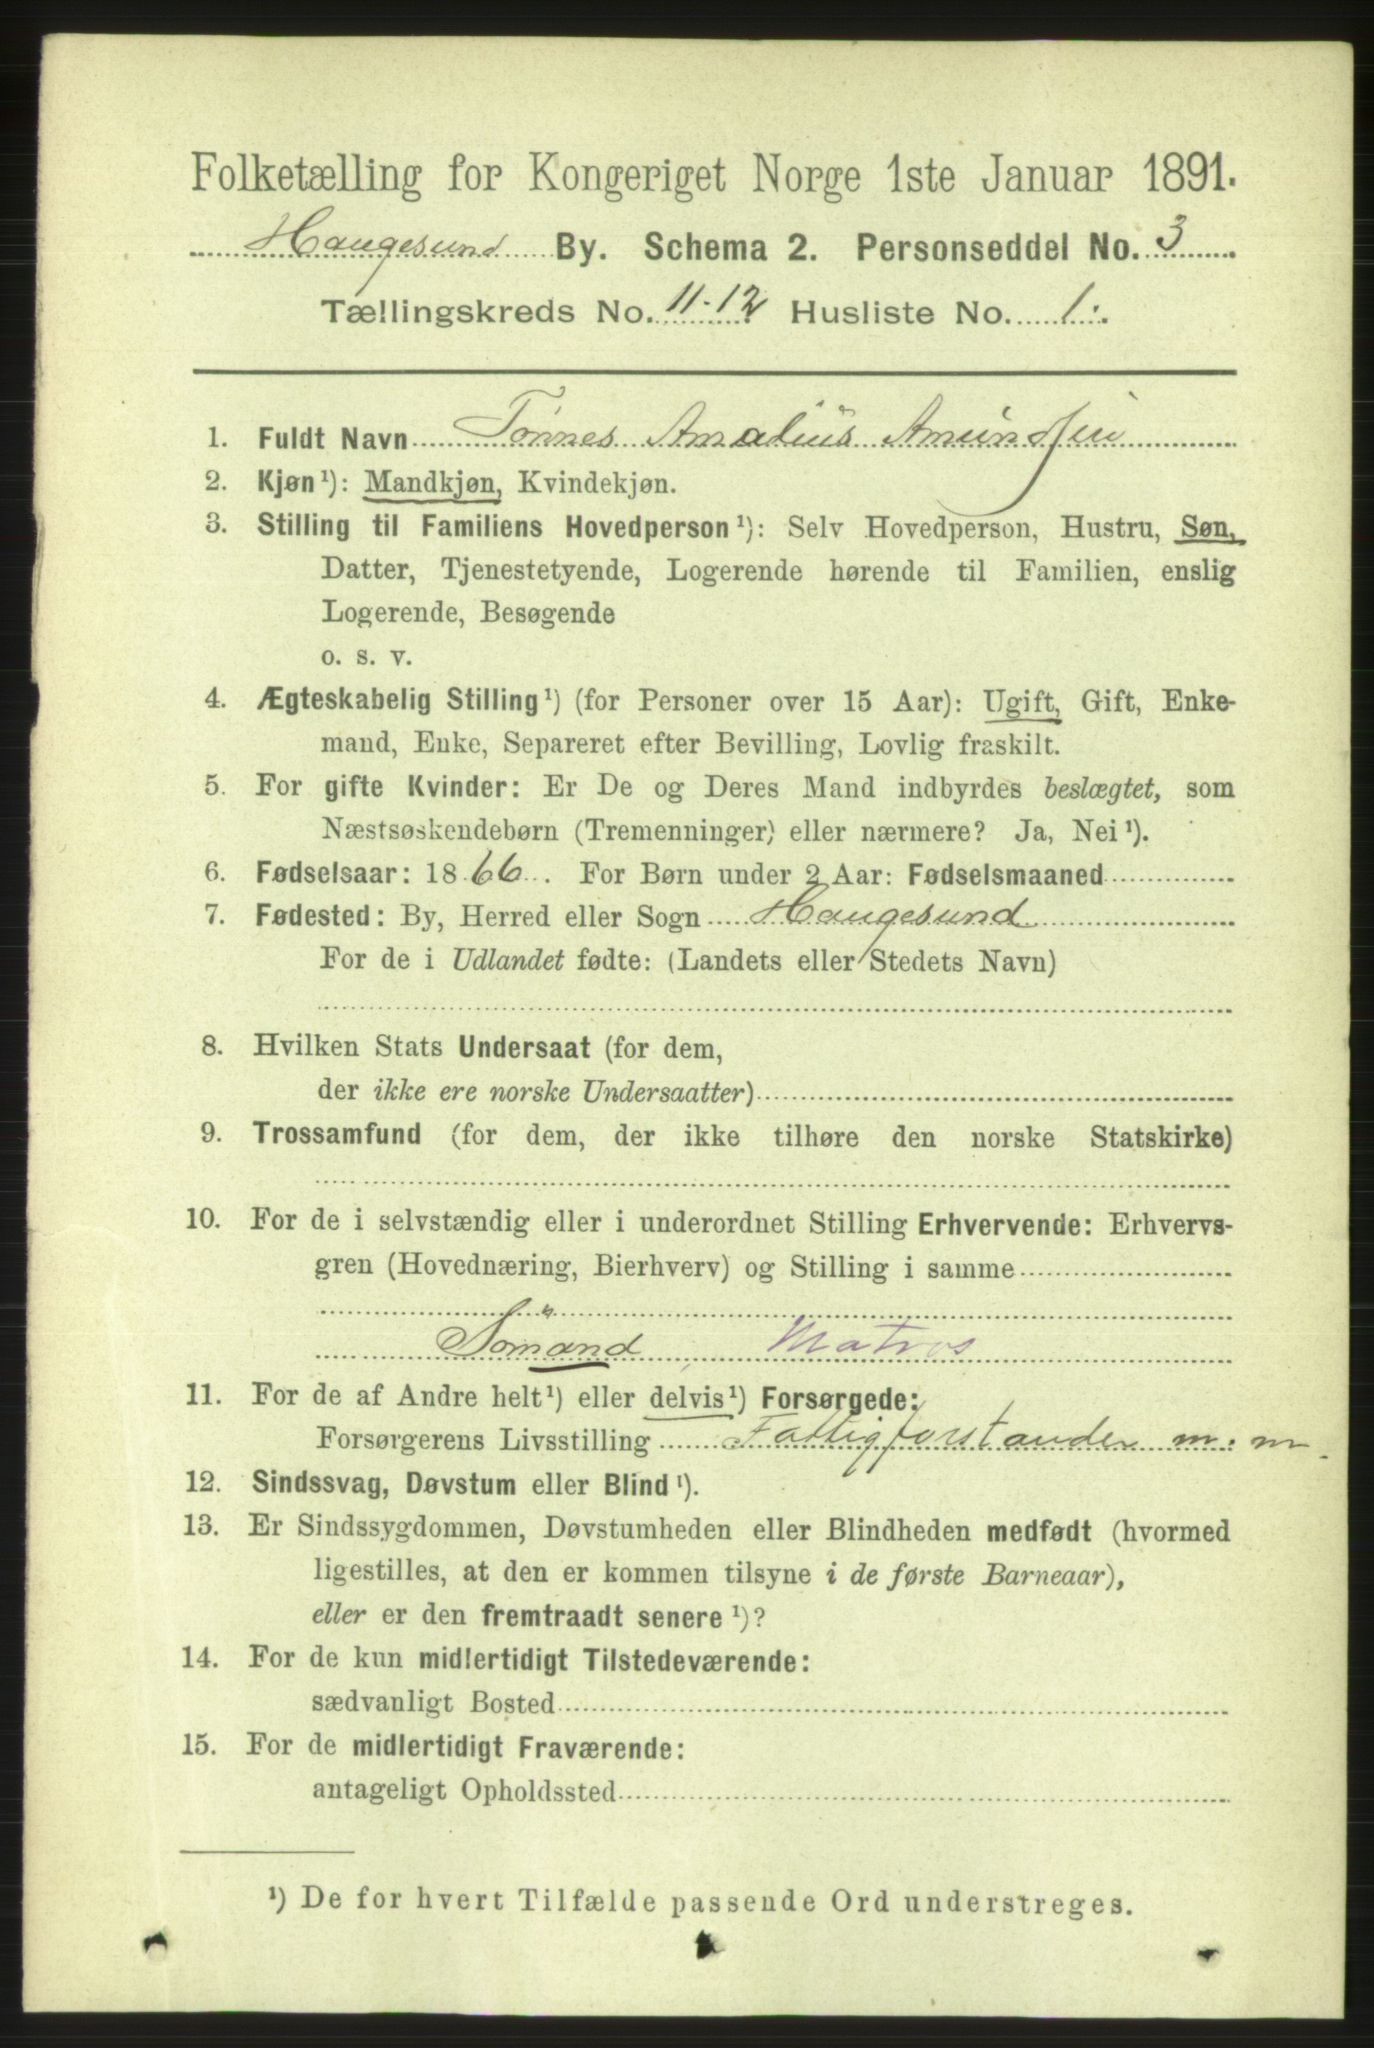 Folketælling for Kongeriget Norge 1ste Januar 1891.
Haugesund By. Schema 2. Personseddel No. 3
Tællingskreds No. 11-12 Husliste No. 1.
1. Fuldt Navn Tönnes Amalius Amundsen
2. Kjøn ¹): Mandkjøn, Kvindekjøn.
3. Stilling til Familiens Hovedperson ¹): Selv Hovedperson, Hustru, Søn,
Datter, Tjenestetyende, Logerende hørende til Familien, enslig
Logerende, Besøgende
o. s. v.
4. Ægteskabelig Stilling ¹) (for Personer over 15 Aar): Ugift, Gift, Enke-
mand, Enke, Separeret efter Bevilling, Lovlig fraskilt.
5. For gifte Kvinder: Er De og Deres Mand indbyrdes beslægtet, som
Næstsøskendebørn (Tremenninger) eller nærmere? Ja, Nei ¹).
6. Fødselsaar: 1866. For Børn under 2 Aar: Fødselsmaaned
7. Fødested: By, Herred eller Sogn Haugesund
For de i Udlandet fødte: (Landets eller Stedets Navn)
8. Hvilken Stats Undersaat (for dem,
der ikke ere norske Undersaatter)
9. Trossamfund (for dem, der ikke tilhøre den norske Statskirke)
10. For de i selvstændig eller i underordnet Stilling Erhvervende: Erhvervs-
gren (Hovednæring, Bierhverv) og Stilling i samme
Sömand Matros
11. For de af Andre helt ¹) eller delvis ¹) Forsørgede:
Forsørgerens Livsstilling Fattigforstander m. m.
12. Sindssvag, Døvstum eller Blind ¹).
13. Er Sindssygdommen, Døvstumheden eller Blindheden medfødt (hvormed
ligestilles, at den er kommen tilsyne i de første Barneaar),
eller er den fremtraadt senere ¹)?
14. For de kun midlertidigt Tilstedeværende:
sædvanligt Bosted
15. For de midlertidigt Fraværende:
antageligt Opholdssted
¹) De for hvert Tilfælde passende Ord understreges.